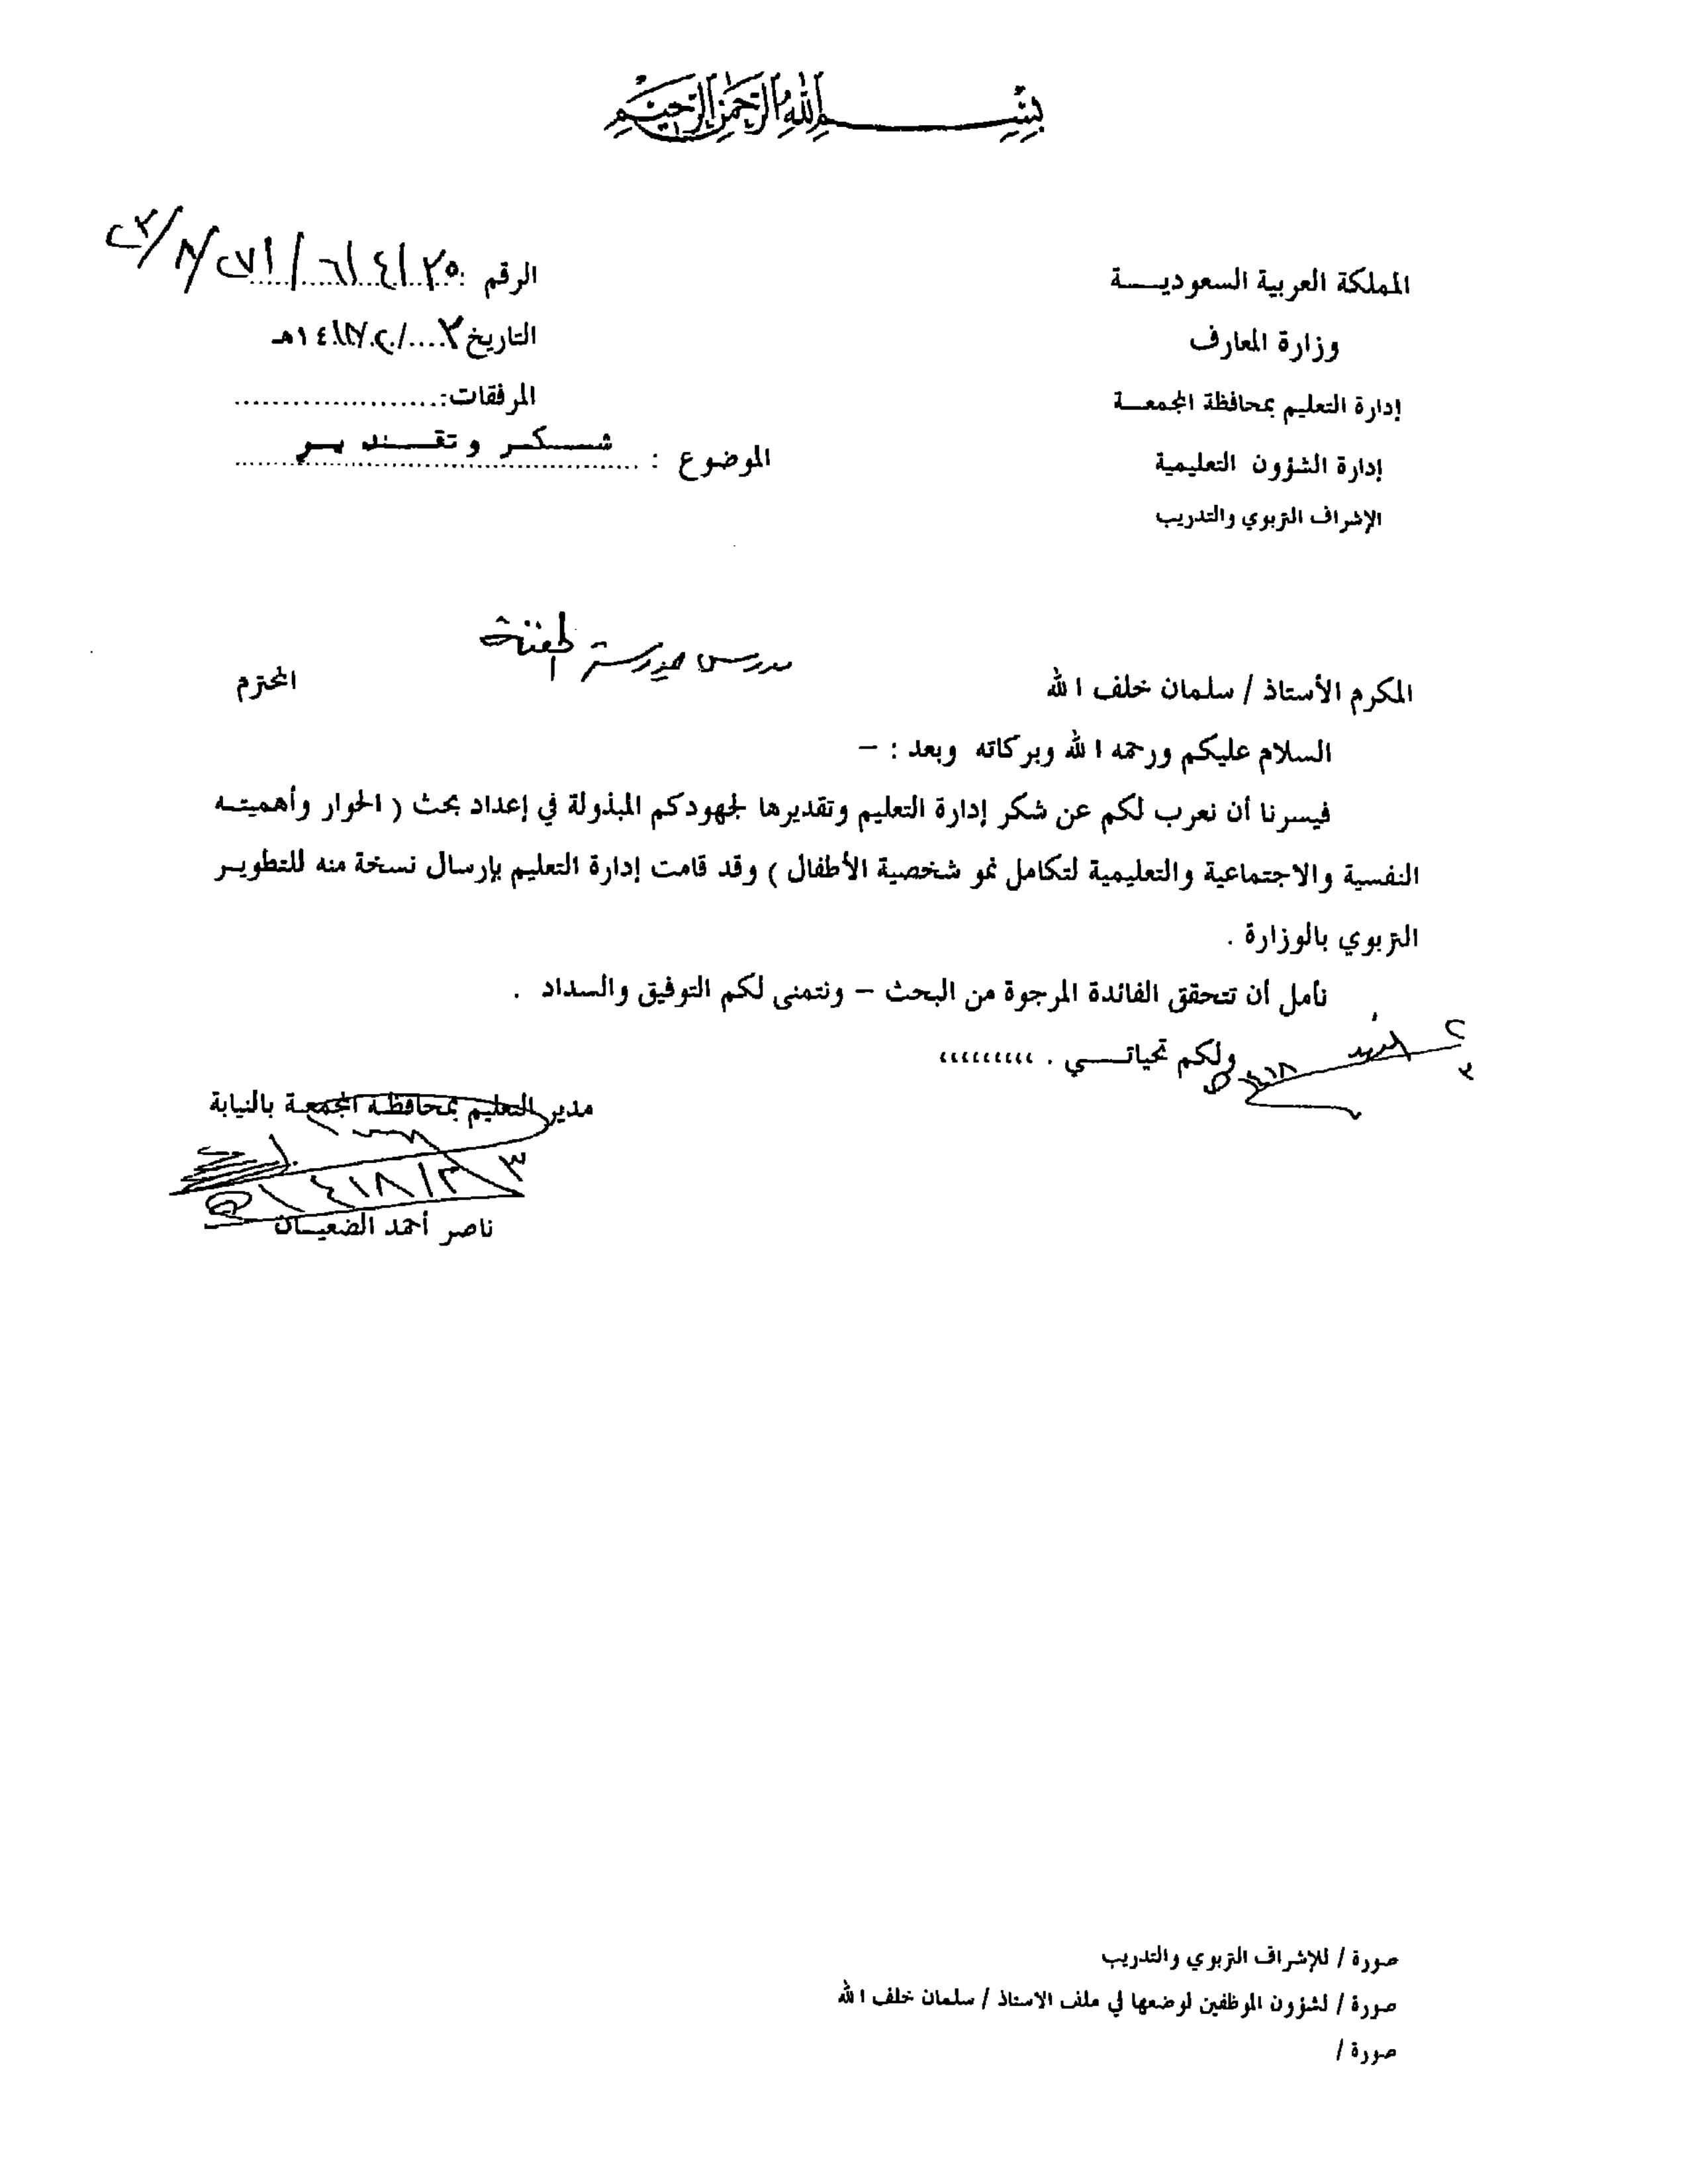 بسم الله الرحمن الرحيم
المملكة العربية السعوديـــة
وزارة المعارف
إدارة التعليم بمحافظة المجمعـــة
إدارة الشؤون التعليمية
الإشراف التربوي والتدريب
الرقم :
التاريخ ١٤هـ
المرفقات:.....................
الموضوع : شـــكـــر وتقـــديـــر
المكرم الأستاذ / سلمان خلف الله مدرس المحترم
السلام عليكم ورحمه الله وبركاته وبعد : –
فيسرنا أن نعرب لكم عن شكر إدارة التعليم وتقديرها لجهودكم المبذولة في إعداد بحث ( الحوار وأهميتـه
النفسية والاجتماعية والتعليمية لتكامل نمو شخصية الأطفال ) وقد قامت إدارة التعليم بإرسال نسخة منه للتطويـر
التربوي بالوزارة .
نأمل أن تتحقق الفائدة المرجوة من البحث – ونتمنى لكم التوفيق والسداد .
ولكم تحياتـــي . ،،،،،،،،،
مدير التعليم بمحافظـة المجمعـة بالنيابة
ناصر أحمد الضعيـان
صورة / للإشراف التربوي والتدريب
صورة / لشؤون الموظفين لوضعها في ملف الاستاذ / سلمان خلف الله
صورة /